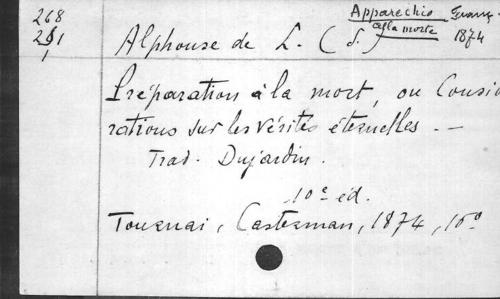 268
Apparechio
Franç.
281
1
Alphonse de L. (S.)
alla morte
1874
Préparation à la mort, ou Considé
rations sur les vérités éternelles. —
Trad. Dujardin.
10e éd.
Tournai, Casterman, 1874, 16o